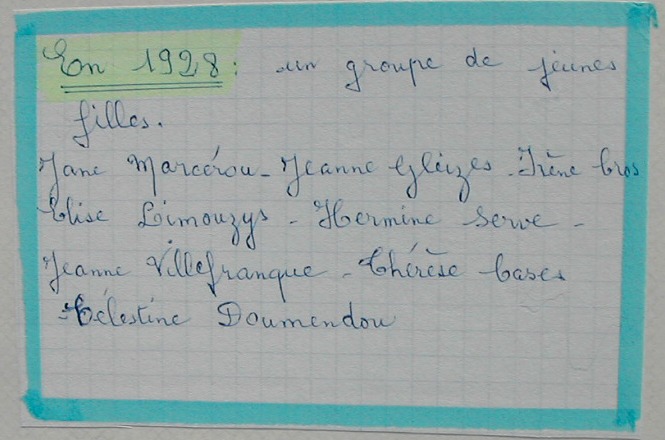 En 1928 : un groupe de jeunes
filles.
Jane Marcérou - Jeanne Gleizes - Irène Cros
Elise Limouzys - Hermine Serve -
Jeanne Villefranque - Thérèse Cases
- Célestine Doumendou